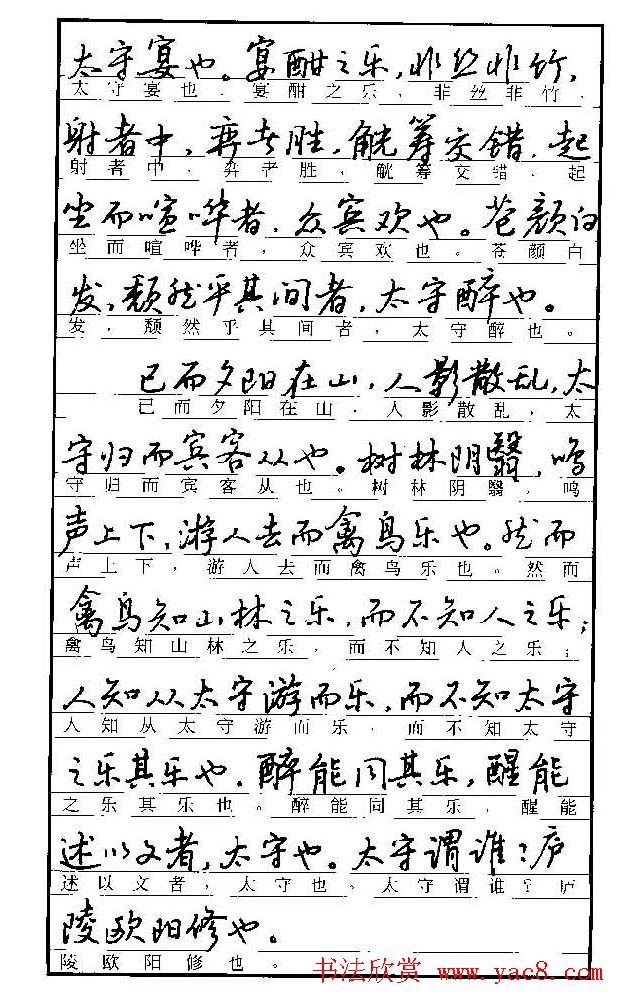 太守宴也。宴酣之乐，非丝非竹，
太守宴也．宴酣之乐，非丝非竹，
射者中，弈者胜，觥筹交错，起
射者中，弈者胜，觥筹交错，起
坐而喧哗者，众宾欢也。苍颜白
坐而喧哗者，众宾欢也。苍颜白
发，颓然乎其间者，太守醉也。
发，颓然乎其间者，太守醉也。
已而夕阳在山，人影散乱，太
已而夕阳在山，人影散乱，太
守归而宾客从也。树林阴翳，鸣
守归而宾客从也。树林阴翳，鸣
声上下，游人去而禽鸟乐也。然而
声上下，游人去而禽鸟乐也。然而
禽鸟知山林之乐，而不知人之乐；
禽鸟知山林之乐，而不知人之乐；
人知从太守游而乐，而不知太守
人知从太守游而乐，而不知太守
之乐其乐也．醉能同其乐，醒能
之乐其乐也。醉能同其乐，醒能
述以文者，太守也。太守谓谁？庐
述以文者，太守也。太守谓谁？庐
陵欧阳修也。
陵欧阳修也。
书法欣赏 www.yac8.com